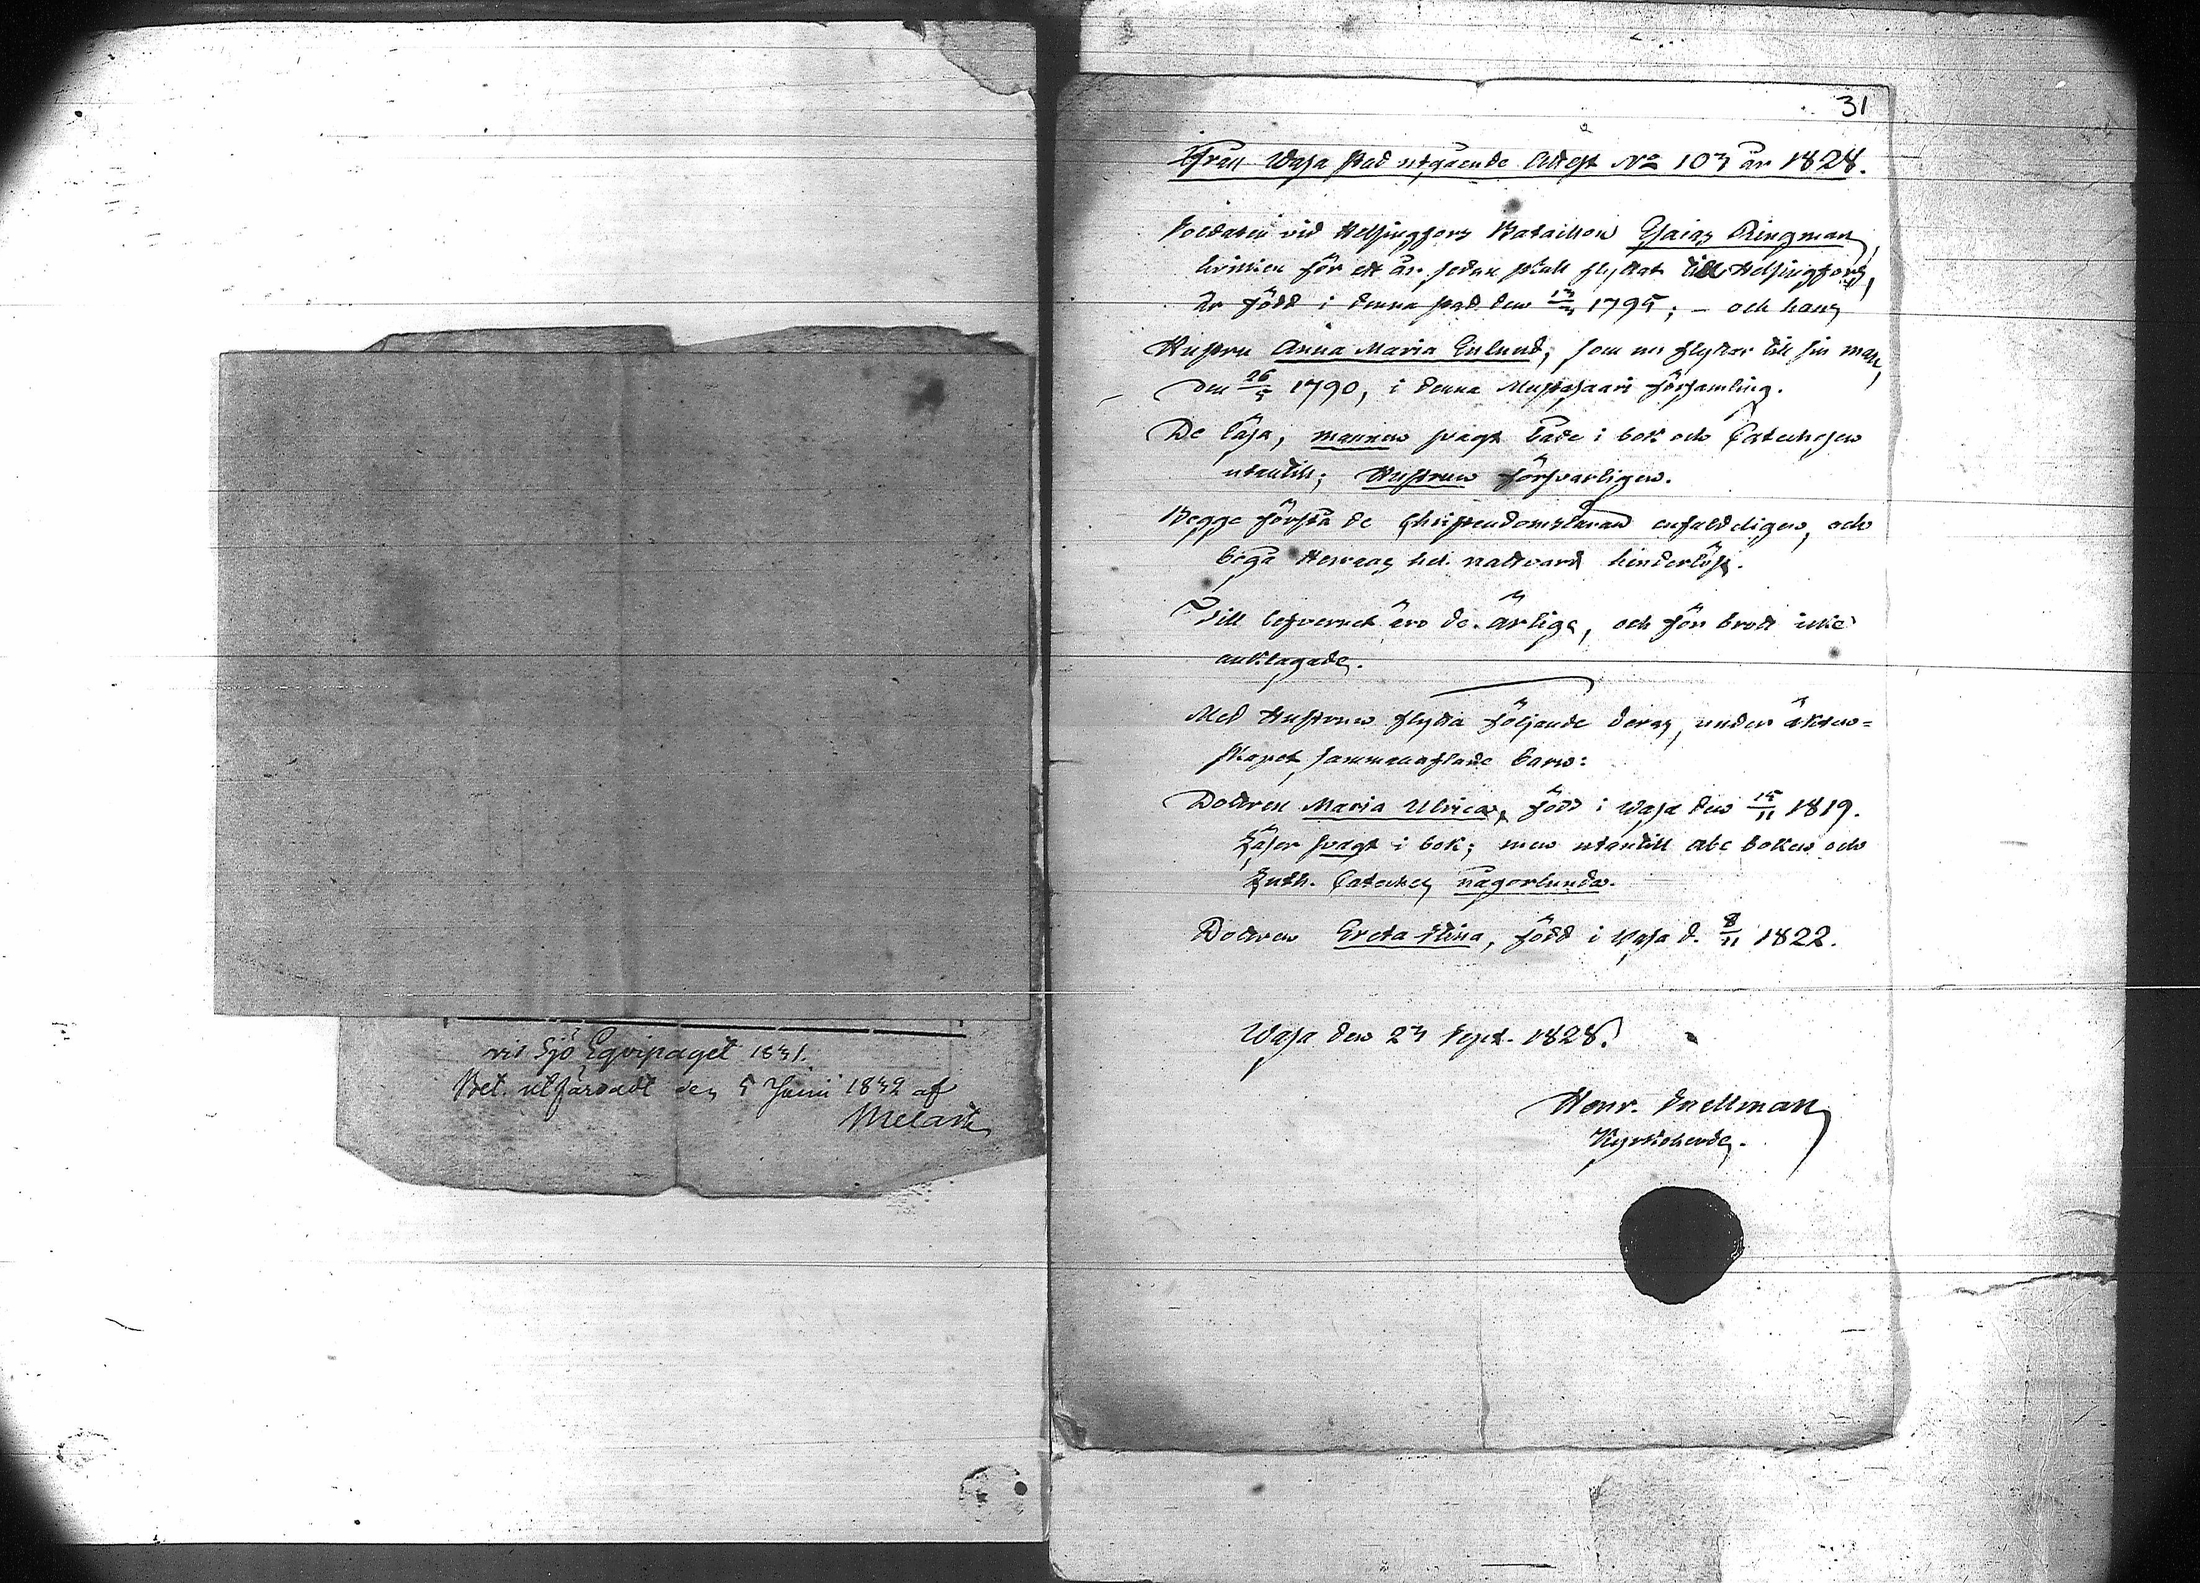 vid Sjö Eqvipaget 1831.
Bet. utfärdadt den 5 Junii 1832 af
Melart
31
Från Wasa stad utgående Attest No 103 år 1828.
Soldaten vid Helsingfors Bataillon Esaias Ringman,
hvilken för ett år sedan skall flyttat till Helsingfors,
är född i denna stad den 13/3 1795; – och hans
Hustru Anna Maria Enlund, som nu flyttar till sin man,
den 26/5 1790, i denna Mustasaari församling.
De läsa, mannen svagt både i bok och Catechesen
utantill; Hustrun försvarligen.
Begge förstå de Christendomsläran enfaldeligen, och
begå Herrans hel. nattvard hinderlöst.
Till lefvernet äro de ärliga, och för brott icke
anklagade.
Med Hustrun flytta följande deras, under äkten-
skapet sammanaflade barn:
Dottren Maria Ulrica, född i Wasa den 15/11 1819.
Läser svagt i bok; men utantill abc boken och
Luth. Cateches någorlunda.
Dottren Greta Stina, född i Wasa d. 8/11 1822.
Wasa den 23 Sept. 1828.
Henr. Snellman
Kyrkoherde.